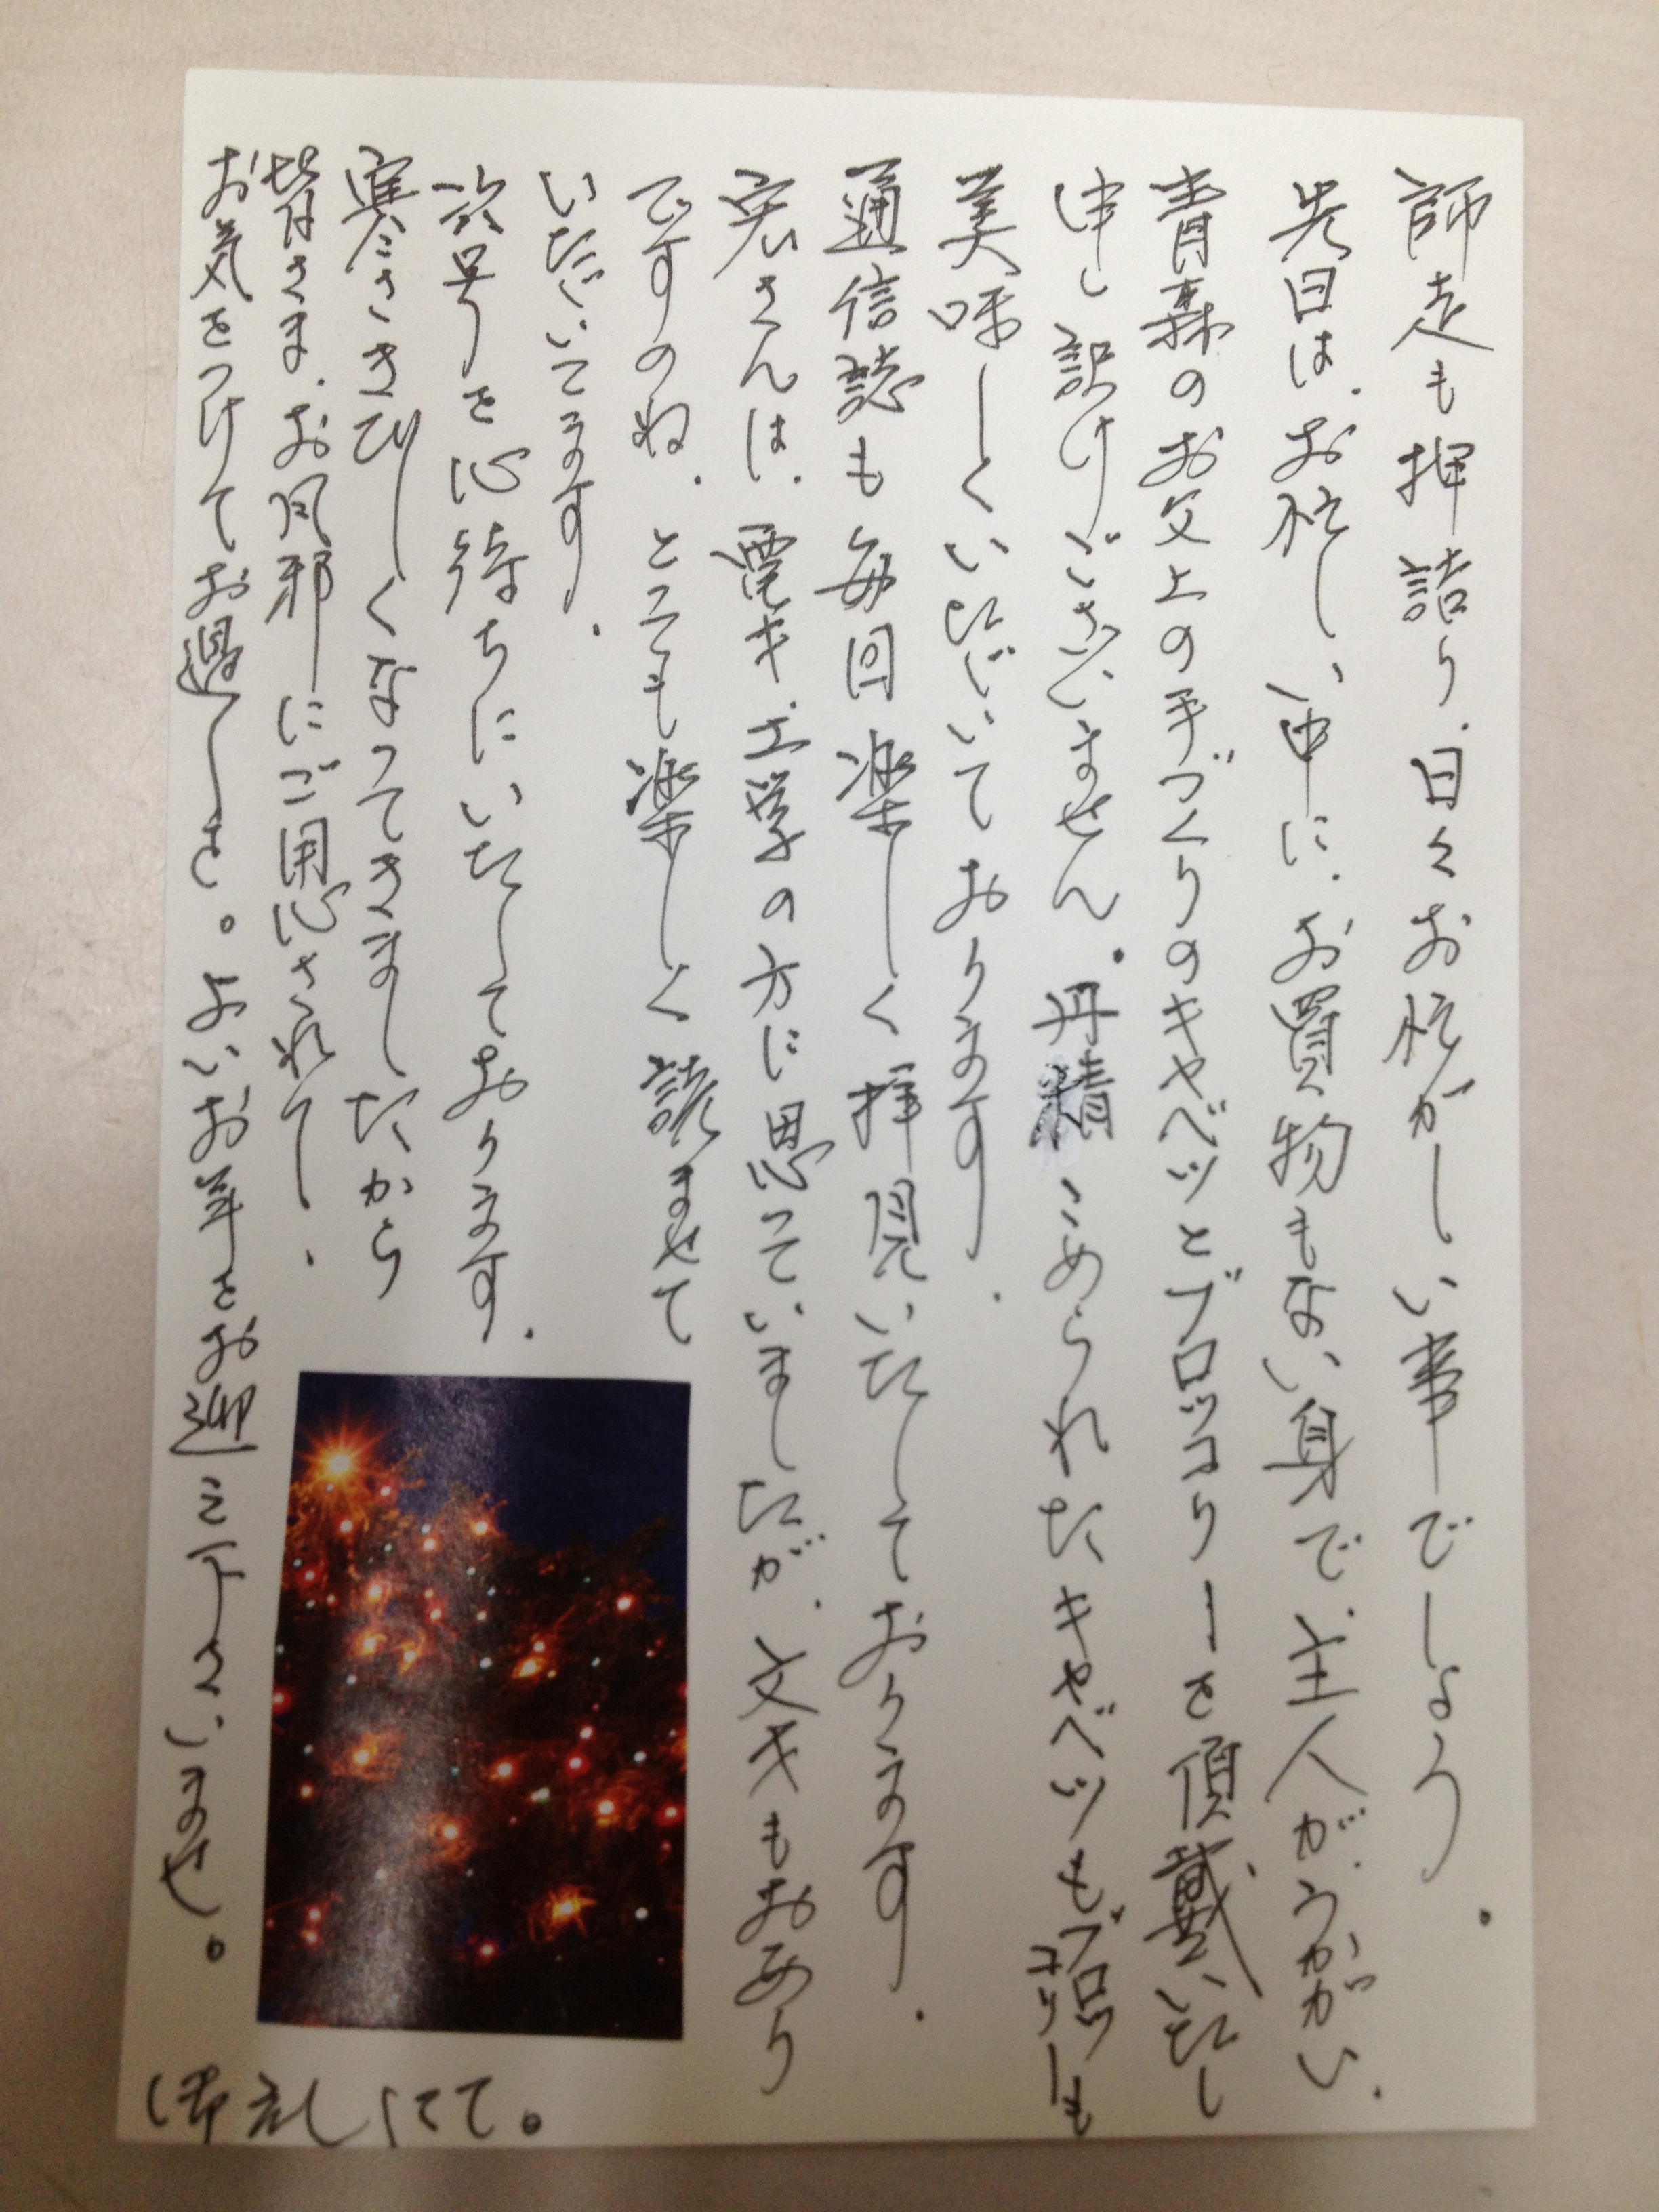 師走も押詰り、日々お忙がしい事でしょう。
先日は、お忙しい中に、お買物もない身で、主人が、うかがい、
青森のお父上の手づくりのキャベツとブロッコリーを頂戴いたし
申し訳けございません。丹精こめられたキャベツもブロッコリーも
美味しくいただいております。
通信誌も毎回楽しく拝見いたしております。
宏さんは、電キ、工学の方に思っていましたが、文才もおあり
ですのね、とても楽しく読ませて
いただいてます。
次号を心待ちにいたしております。
寒さきびしくなってきましたから
皆さま、お風邪にご用心されて、
お気をつけてお過しを。よいお年をお迎え下さいませ。
御礼にて。